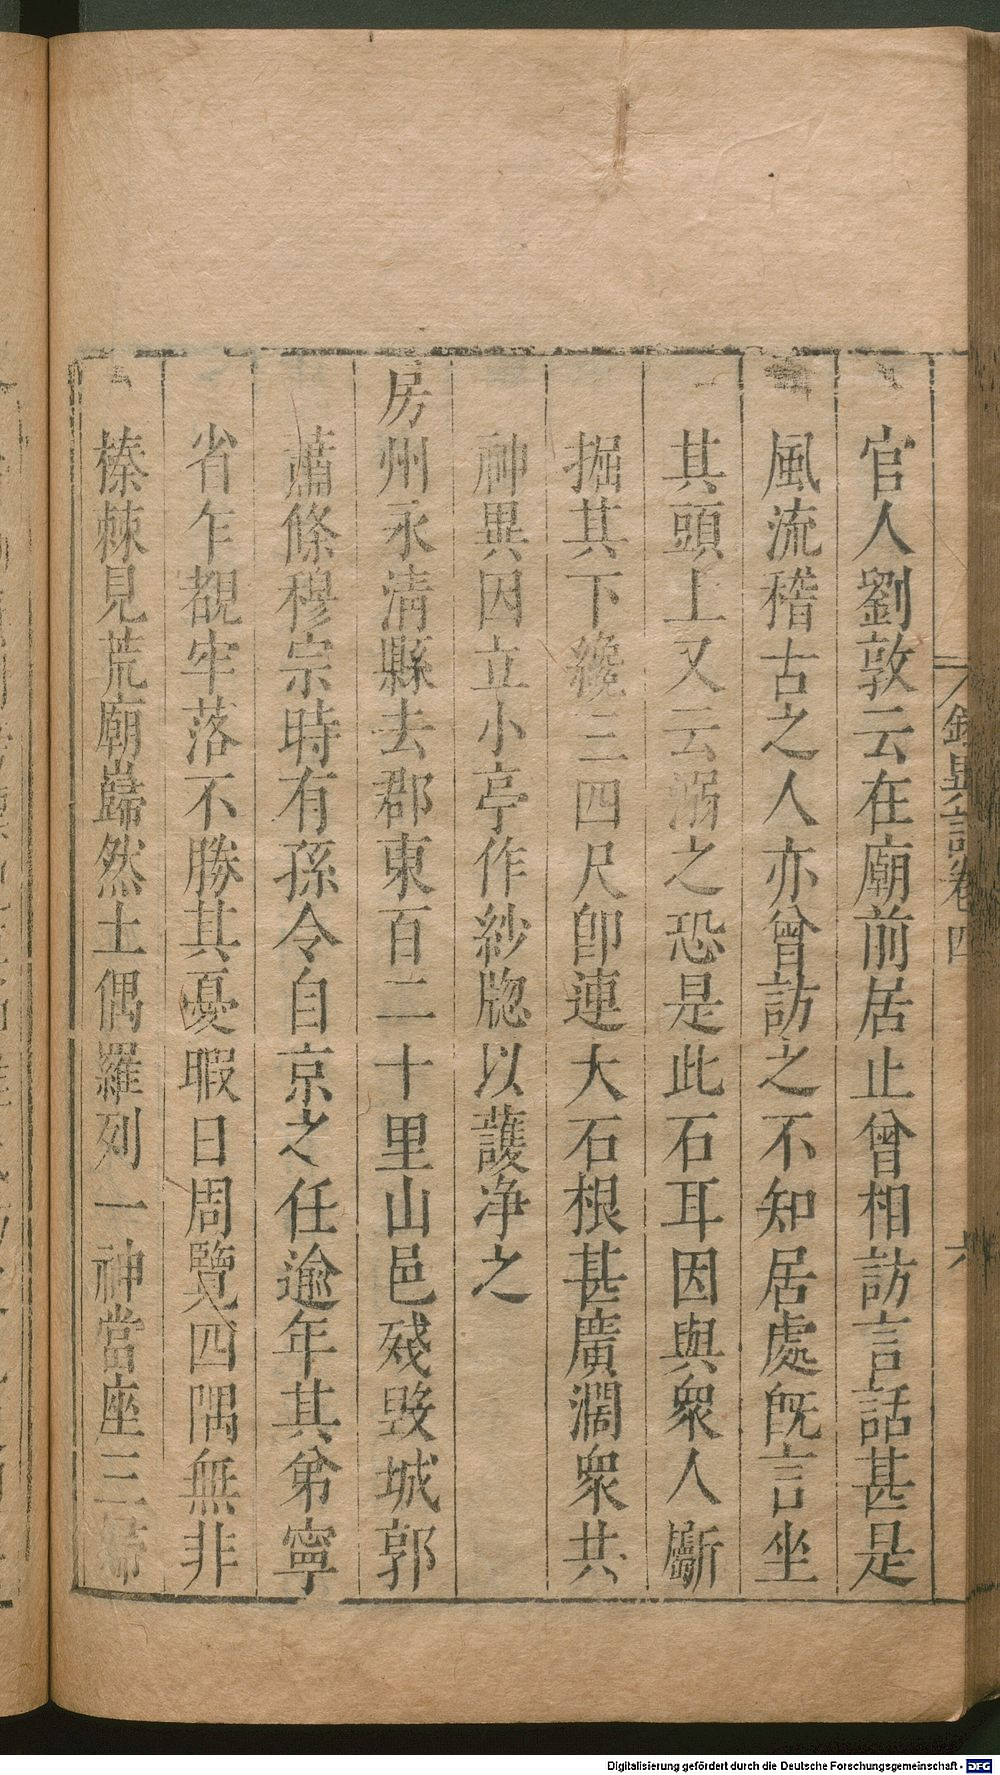 官人劉敦云在廟前居止曾相訪言話甚是
風流稽古之人亦曾訪之不知居處旣言坐
其頭上又云溺之恐是此石耳因與衆人斸
掘其下纔三四尺卽連大石根甚廣濶衆共
神異因立小亭作紗牕以護净之
房州永清縣去郡東百二十里山邑殘毀城郭
蕭條穆宗時有孫令自京之任逾年其弟寧
省乍覩牢落不勝其憂暇日周覽四隅無非
榛棘見荒廟巋然土偶羅列一神當座三
錄異記卷四
六
Digitalisierung gefördert durch die Deutsche Forschungsgemeinschaft - DFG